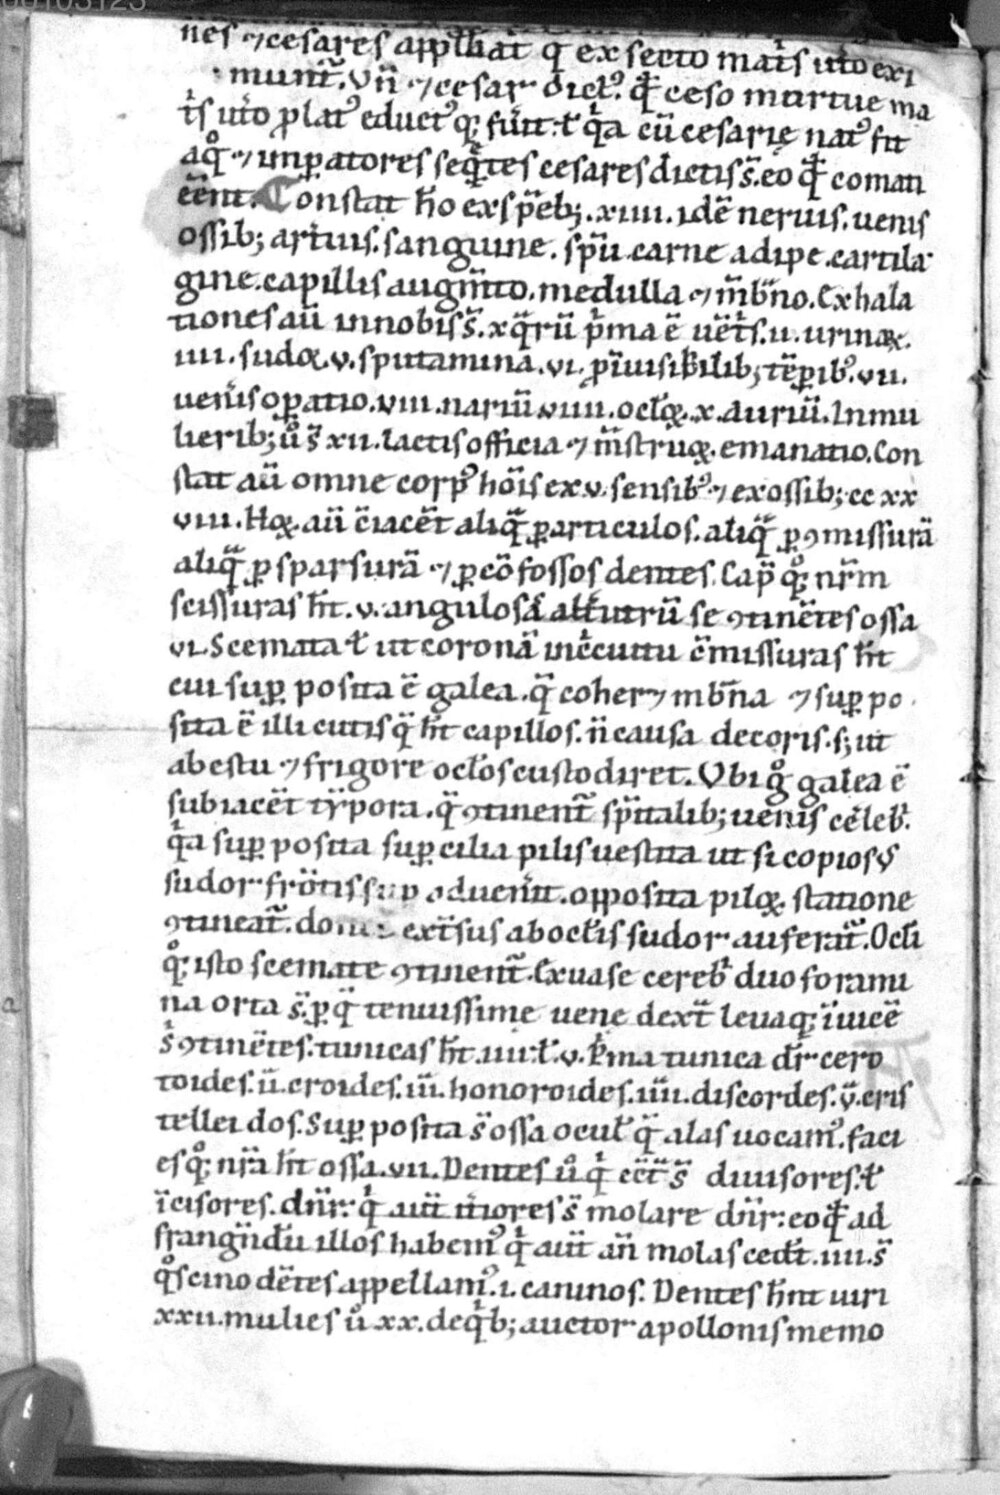 00103123
nes ⁊cesares appllat̄ q ex secto mat̄s uto exi
munt̄. Vn̄ ⁊cesar dict᷒. qđ ceso mortue ma
t̄s uto ꝓlat᷒ educt᷒q; fuīt. ł q̄a cū cesarie nat᷒ sit
aq̊ ⁊ imꝑatores seq̄tes cesares dictis̄. eo qđ comati
eēnt. Constat ħo ex sp̄eb;. xiiii. idē neruis. uenis
ossib; artuis. sanguine. sp̄u. carne adipe. cartila
gine. capillis augm̄to. medulla ⁊ m̄b̄no. Exhala
tiones aū in nobis s̄. x q̄rū p̄ma ē uēt̄s. ii. urinaꝝ.
iiii. sudoꝝ. v. sputamina. vi. ꝑ īuisibilib; tēꝑib᷒. vii.
ueneris oꝑatio. viii. nariū. viiii. oclōꝝ. x. auriū. In mu
lierib; ů s̄ xii. lactis officia ⁊ m̄struoꝝ. emanatio. Con
stat aū omne corp᷒ hōis ex. v. sensib᷒. ⁊ ex ossib; cc xx
viii. Hoꝝ. aū c̄iacēt aliq̄ ꝑ articulos. aliq̄ ꝑ ꝯmissurā
aliq̄ ꝑ sparsurā ⁊ ꝑ cōfossos dentes. Cap̄ q̊; nr̄m
scissuras ħt. v. angulosā altutrū se ꝯtinētes ossa
vi. Scemata ł ut coronā in c̄cuitu c̄missuras ħt
cui suꝑ posita ē galea. q̄ coher ⁊ mb̄na ⁊ suꝑ po
sita ē illi cutis q̄ ħt capillos. n̄ causa decoris. s; ut
ab estu ⁊ frigore oclōs custodiret. Vbi g̊ galea ē
subiacēt tȳpora. q̄ ꝯtinent̄ sp̄italib; uenis cēleb᷒.
q̄a suꝑ posita suꝑcilia pilis uestita ut si copiosus
sudor frōtis suꝑ aduenīt. opposita piloꝝ. statione
ꝯtineat̄. extsus ab oclīs sudor auferat̄. Oclī
q̊; isto scemate ꝯtinent̄. Ex uase cereb̄ duo forami
na orta s̄. ꝑ q̄ tenuissime uene dext̄ leuaq; īuicē
s̄ ꝯtinētes. tunicas ħt. iiii. ł. v. P̄ma tunica dr̄ cero
toides. ii. croides. iii. honoroides. iiii. discordes. v̄. cris
tellei dos. Suꝑ posita s̄ ossa ocul̄ q̄ alas uocam᷒. faci
esq̊; nr̄a ħt ossa. vii. Dentes ů q̄ ēct̄ s̄ diuisores. ł
īcisores. dn̄r. q̄ aūt īt̄iores s̄ molare dn̄r: eo qđ ad
frangn̄dū illos habem᷒ q̄ aūt an̄ molas cedt̄. iiii. s̄
q̊s cino dētes appellam᷒. i. caninos. Dentes ħnt uiri
xxii. mulies ů xx. de q̄b; auctor apollonis memo